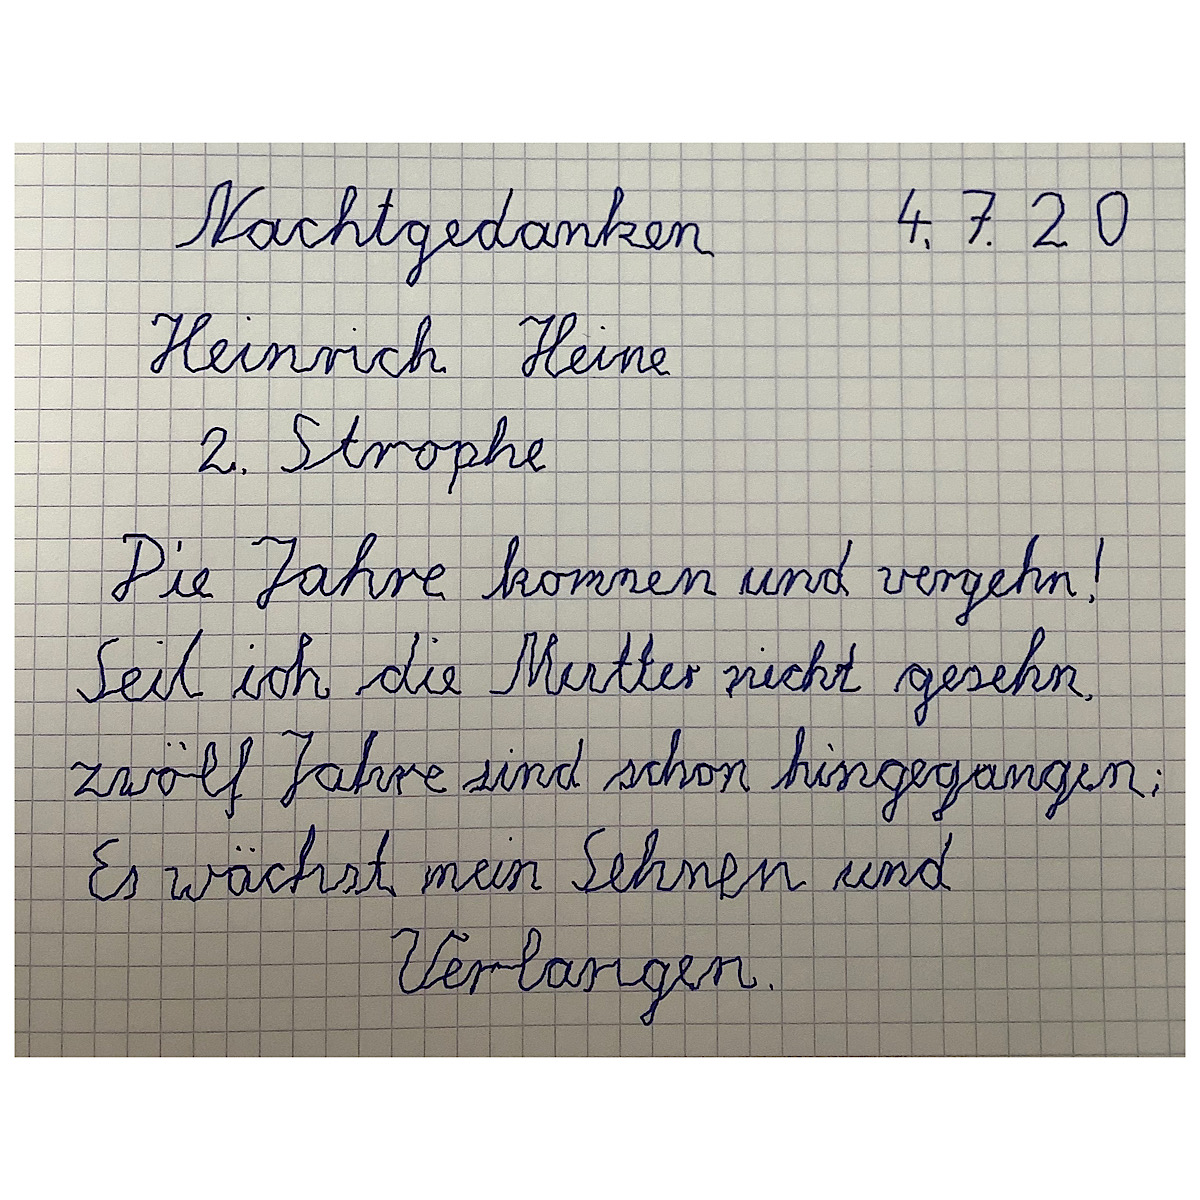 Nachtgedanken 4.7.20
Heinrich Heine
2. Strophe
Die Jahre kommen und vergehn!
Seit ich die Mutter nicht gesehn,
zwölf Jahre sind schon hingegangen;
Es wächst mein Sehnen und
Verlangen.